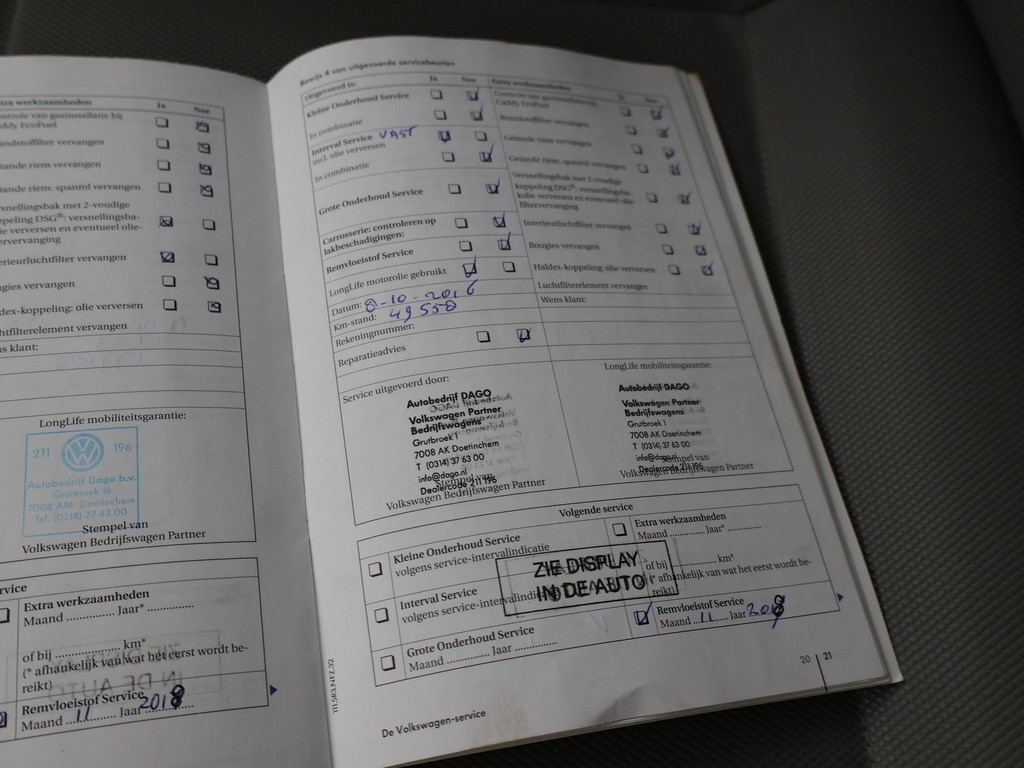 xtra werkzaamheden Ja Nee
ontrole van gasinstallatie bij
ddy EcoFuel
andstoffilter vervangen
tande riem vervangen
tande riem: spanrol vervangen
rsnellingsbak met 2-voudige
ppeling DSG®: versnellingsba-
lie verversen en eventueel olie-
ervervanging
erieurluchtfilter vervangen
ugies vervangen
ldex-koppeling: olie verversen
htfilterelement vervangen
ns klant:
LongLife mobiliteitsgarantie:
211 196
Autobedrijf Dago b.v.
Grutbroek 16
7008 AM Doetinchem
Tel. (0314) 37 63 00
Stempel van
Volkswagen Bedrijfswagen Partner
rvice
Extra werkzaamheden
Maand ............. Jaar* ..............
of bij ...................... km*
(* afhankelijk van wat het eerst wordt be-
reikt)
Remvloeistof Service
Maand ...11......... Jaar 2018
Bewijs 4 van uitgevoerde servicebeurten
Uitgevoerd is: Ja Nee
Kleine Onderhoud Service
In combinatie
Interval Service VAST
incl. olie verversen
In combinatie
Grote Onderhoud Service
Carrosserie: controleren op
lakbeschadigingen:
Remvloeistof Service
LongLife motorolie gebruikt
Datum: 8-10-2016
Km-stand: 49558
Rekeningnummer:
Reparatieadvies
Extra werkzaamheden Ja Nee
Controle van gasinstallatie bij
Caddy EcoFuel
Brandstoffilter vervangen
Getande riem vervangen
Getande riem: spanrol vervangen
Versnellingsbak met 2-voudige
koppeling DSG®: versnellingsba-
kolie verversen en eventueel olie-
filtervervanging
Interieurluchtfilter vervangen
Bougies vervangen
Haldex-koppeling: olie verversen
Luchtfilterelement vervangen
Wens klant:
Service uitgevoerd door:
Autobedrijf DAGO
Volkswagen Partner
Bedrijfswagens
Grutbroek 1
7008 AK Doetinchem
T (0314) 37 63 00
info@dago.nl
Dealercode 211 196
Stempel van
Volkswagen Bedrijfswagen Partner
LongLife mobiliteitsgarantie:
Autobedrijf DAGO
Volkswagen Partner
Bedrijfswagens
Grutbroek 1
7008 AK Doetinchem
T (0314) 37 63 00
info@dago.nl
Dealercode 211 196
Stempel van
Volkswagen Bedrijfswagen Partner
Volgende service
Kleine Onderhoud Service
volgens service-intervalindicatie
Interval Service
volgens service-intervalindi
Grote Onderhoud Service
Maand ............. Jaar ..............
ZIE DISPLAY
IN DE AUTO
Extra werkzaamheden
Maand ............. Jaar* ..............
of bij ...................... km*
(* afhankelijk van wat het eerst wordt be-
reikt)
Remvloeistof Service
Maand ...11...... Jaar 2018
111.5R3.NFZ.32
De Volkswagen-service
20 21